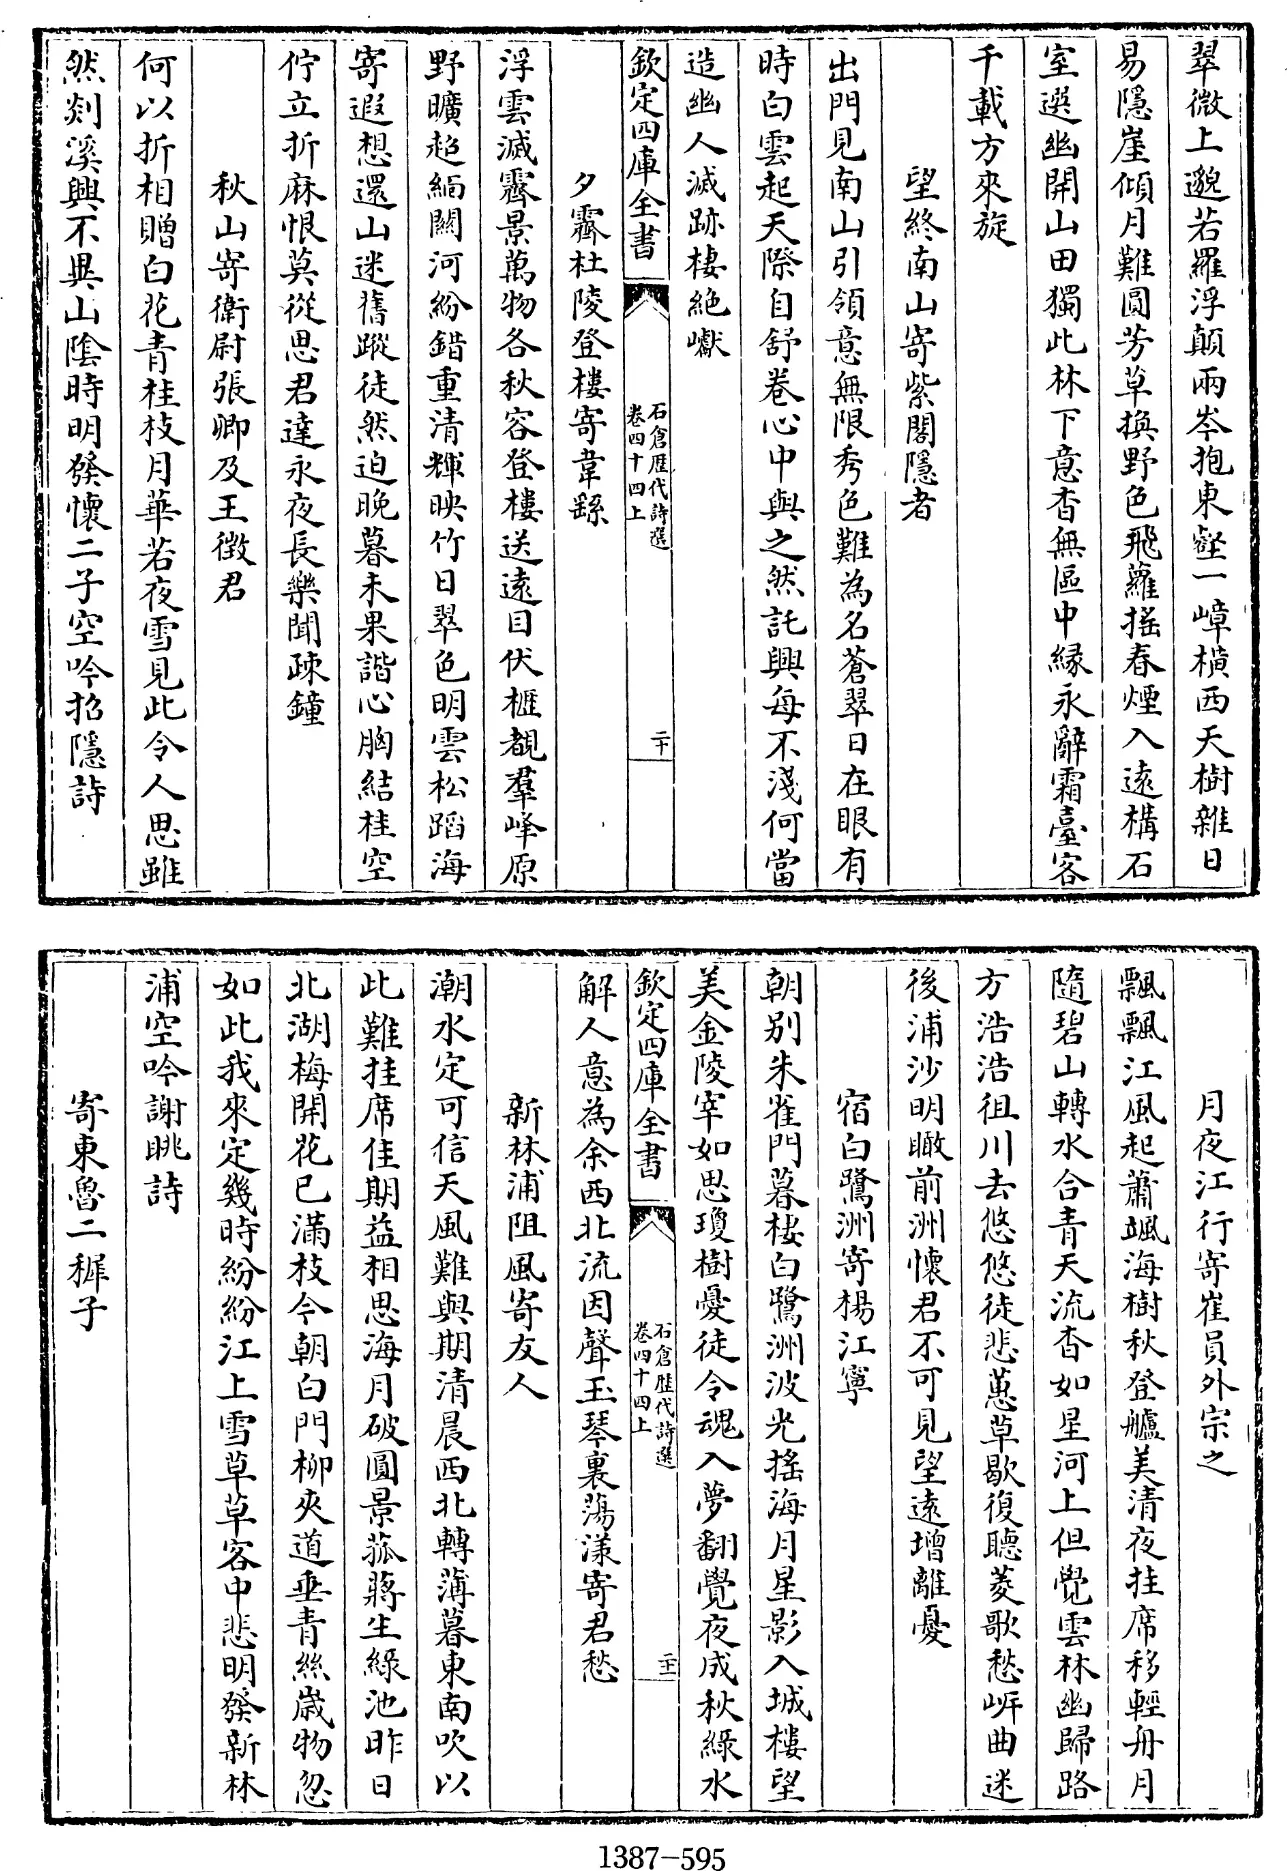 翠微上邈若羅浮顛兩岑抱東壑一嶂橫西天樹雜日
易隱崖傾月難圓芳草換野色飛蘿搖春煙入遠構石
室選幽開山田獨此林下意杳無區中縁永辭霜臺客
千載方來旋
望終南山寄紫閣隱者
出門見南山引領意無限秀色難為名蒼翠日在眼有
時白雲起天際自舒卷心中與之然託興每不淺何當
造幽人滅跡棲絶巘
欽定四庫全書
石倉歴代詩選
卷四十四上
二十
夕霽杜陵登樓寄韋繇
浮雲滅霽景萬物各秋容登樓送遠目伏檻覩羣峰原
野曠超緬關河紛錯重清輝映竹日翠色明雲松蹈海
寄遐想還山迷舊蹤徒然迫晚暮未果諧心胸結桂空
佇立折麻恨莫從思君達永夜長樂聞疎鐘
秋山寄衛尉張卿及王徵君
何以折相贈白花青桂枝月華若夜雪見此令人思雖
然剡溪興不異山陰時明發懷二子空吟招隱詩
月夜江行寄崔員外宗之
飄飄江風起蕭颯海樹秋登艫美清夜挂席移輕舟月
隨碧山轉水合青天流杳如星河上但覺雲林幽歸路
方浩浩徂川去悠悠徒悲蕙草歇復聽菱歌愁岍曲迷
後浦沙明瞰前洲懷君不可見望遠增離憂
宿白鷺洲寄楊江寧
朝别朱雀門暮棲白鷺洲波光搖海月星影入城樓望
美金陵宰如思瓊樹憂徒令魂入夢翻覺夜成秋綠水
欽定四庫全書
石倉歴代詩選
卷四十四上
二十一
解人意為余西北流因聲玉琴裏蕩漾寄君愁
新林浦阻風寄友人
潮水定可信天風難與期清晨西北轉薄暮東南吹以
此難挂席佳期益相思海月破圓景菰蔣生綠池昨日
北湖梅開花已滿枝今朝白門柳夾道垂青絲歳物忽
如此我來定幾時紛紛江上雪草草客中悲明發新林
浦空吟謝眺詩
寄東魯二穉子
1387-595